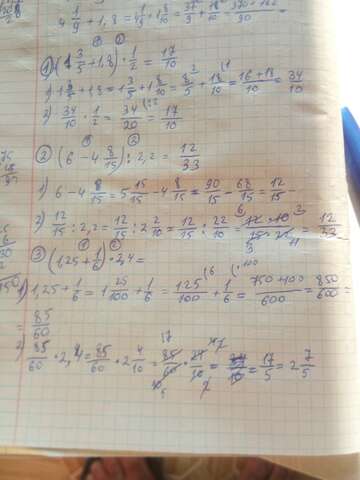 4 1/9 + 1,8 = 4 1/9 + 1 8/10 = 37/9 + 18/10 =
① (1 3/5 + 1,8) · 1/2 = 17/10
1) 1 3/5 + 1,8 = 1 3/5 + 1 8/10 = 8/5 + 18/10 = 16+18/10 = 34/10
2) 34/10 · 1/2 = 34/20 = 17/10
② (6 - 4 8/15) : 2,2 = 12/33
1) 6 - 4 8/15 = 5 15/15 - 4 8/15 = 90/15 - 68/15 = 12/15
2) 12/15 : 2,2 = 12/15 : 2 2/10 = 12/15 : 22/10 = 12·10/15·22 = 12/33
③ (1,25 + 1/6) · 2,4 =
1) 1,25 + 1/6 = 1 25/100 + 1/6 = 125/100 + 1/6 = 750+100/600 = 850/600 =
= 85/60
2) 85/60 · 2,4 = 85/60 · 2 4/10 = 85/60 · 24/10 = = 17/5 = 2 7/5